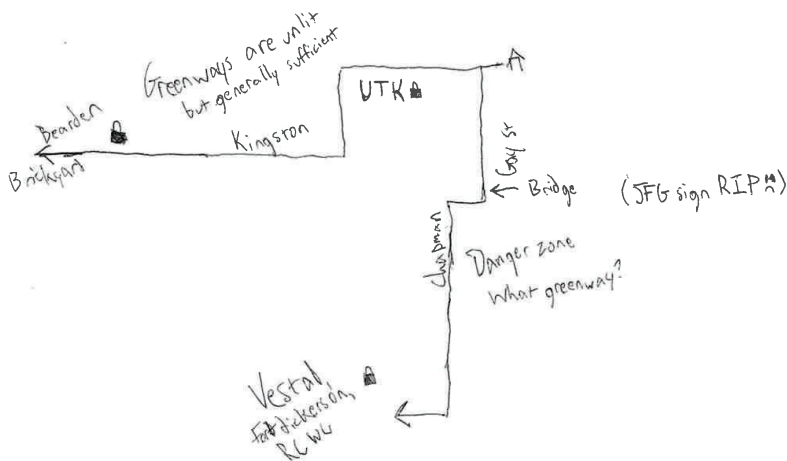 Greenways are unlit
but generally sufficient
A
UTK
Bearden
Kingston
Brickyard
Gay St
Bridge
(JFG sign RIP)
Chapman
Danger zone
What greenway?
Vestal,
Fort dickerson,